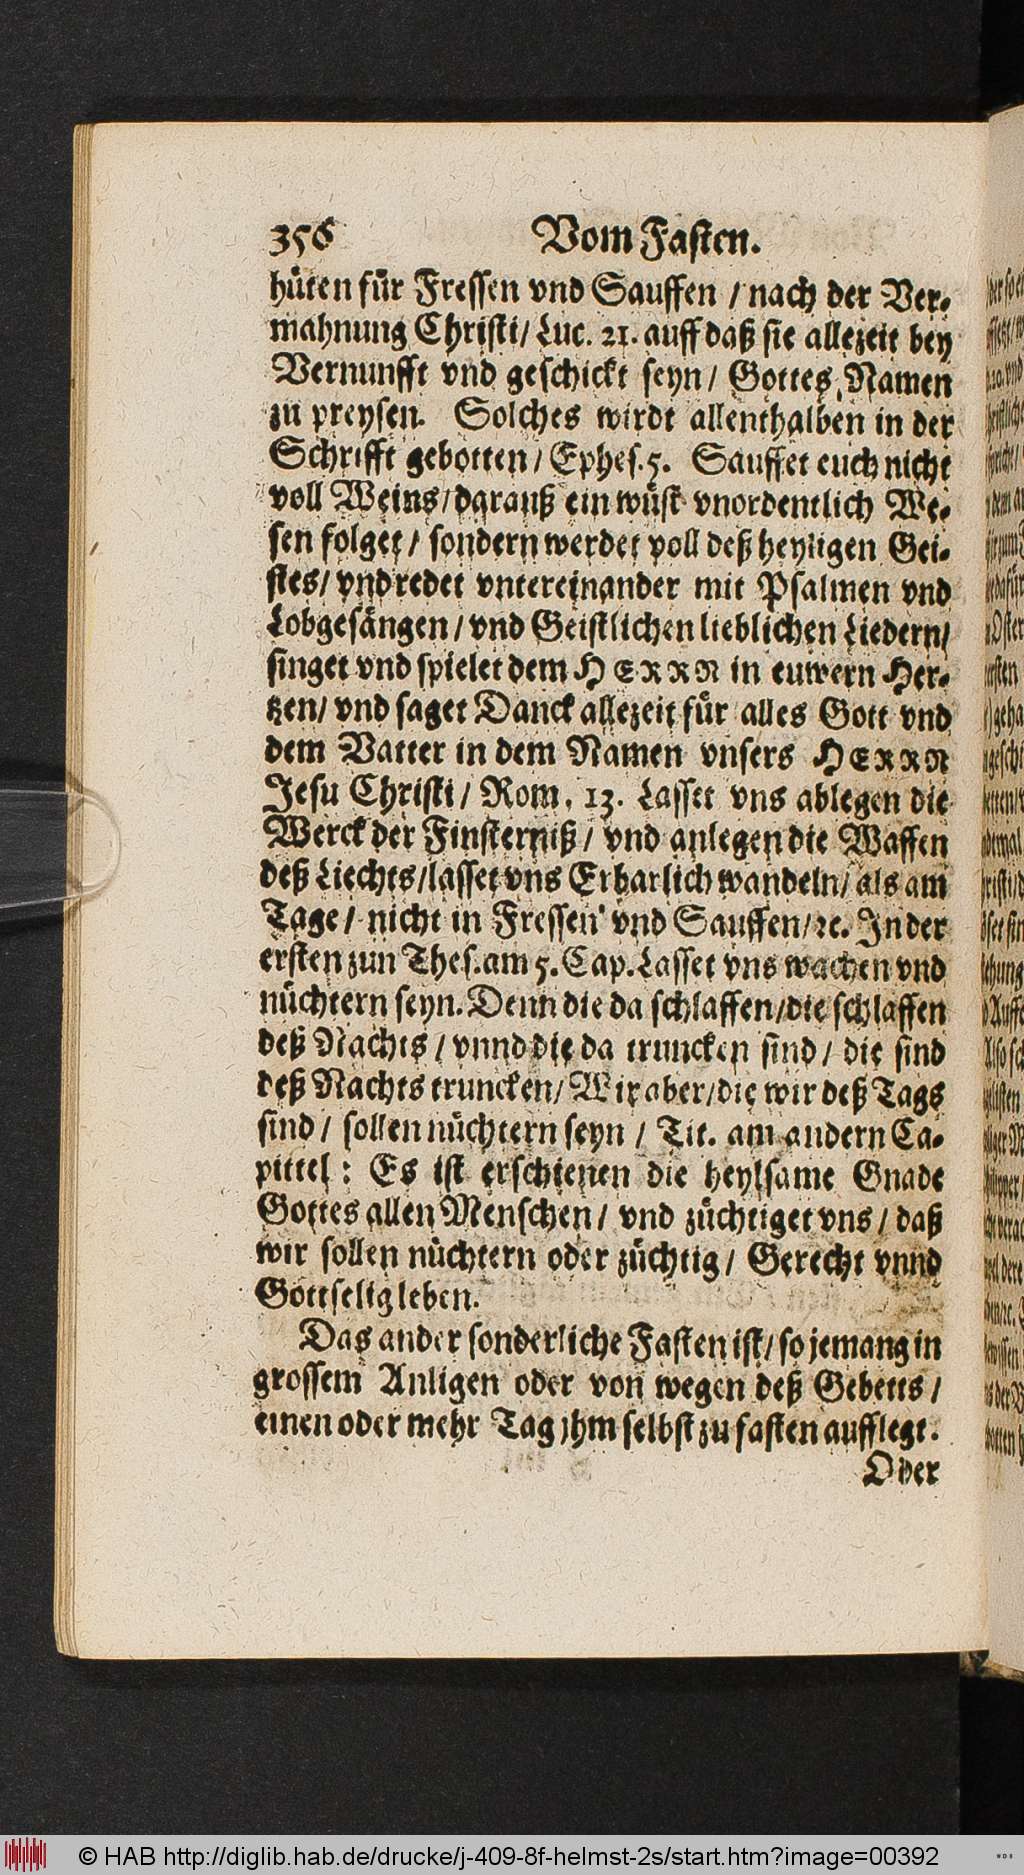 356 Vom Fasten.
hüten für Fressen vnd Sauffen / nach der Ver-
mahnung Christi / Luc. 21. auff daß sie allezeit bey
Vernunfft vnd geschickt seyn / Gottes Namen
zu preysen. Solches wirdt allenthalben in der
Schrifft gebotten / Ephes. 5. Sauffet euch nicht
voll Weins / darauß ein wüst vnordentlich We-
sen folget / sondern werdet voll deß heyligen Gei-
stes / vnd redet vntereinander mit Psalmen vnd
Lobgesängen / vnd Geistlichen lieblichen Liedern /
singet vnd spielet dem HERRN in euwern Her-
tzen / vnd saget Danck allezeit für alles Gott vnd
dem Vatter in dem Namen vnsers HERRN
Jesu Christi / Rom. 13. Lasset vns ablegen die
Werck der Finsterniß / vnd anlegen die Waffen
deß Liechts / lasset vns Erbarlich wandeln / als am
Tage / nicht in Fressen vnd Sauffen / ꝛc. In der
ersten zun Thes. am 5. Cap. Lasset vns wachen vnd
nüchtern seyn. Denn die da schlaffen / die schlaffen
deß Nachts / vnnd die da truncken sind / die sind
deß Nachts truncken / Wir aber / die wir deß Tags
sind / sollen nüchtern seyn / Tit. am andern Ca-
pittel : Es ist erschienen die heylsame Gnade
Gottes allen Menschen / vnd züchtiget vns / daß
wir sollen nüchtern oder züchtig / Gerecht vnnd
Gottselig leben.
Das ander sonderliche Fasten ist / so jemang in
grossem Anligen oder von wegen deß Gebetts /
einen oder mehr Tag jhm selbst zu fasten aufflegt.
Oder
© HAB http://diglib.hab.de/drucke/j-409-8f-helmst-2s/start.htm?image=00392